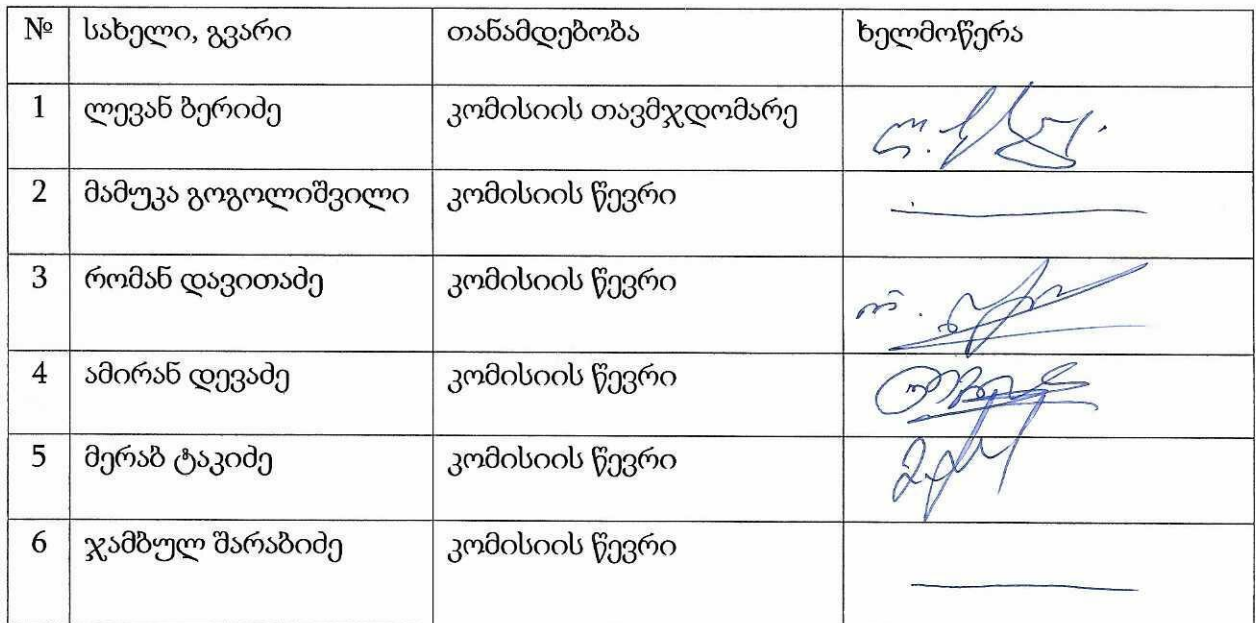 № სახელი, გვარი თანამდებობა ხელმოწერა
1 ლევან ბერიძე კომისიის თავმჯდომარე
2 მამუკა გოგოლიშვილი კომისიის წევრი
3 რომან დავითაძე კომისიის წევრი
4 ამირან დევაძე კომისიის წევრი
5 მერაბ ტაკიძე კომისიის წევრი
6 ჯამბულ შარაბიძე კომისიის წევრი